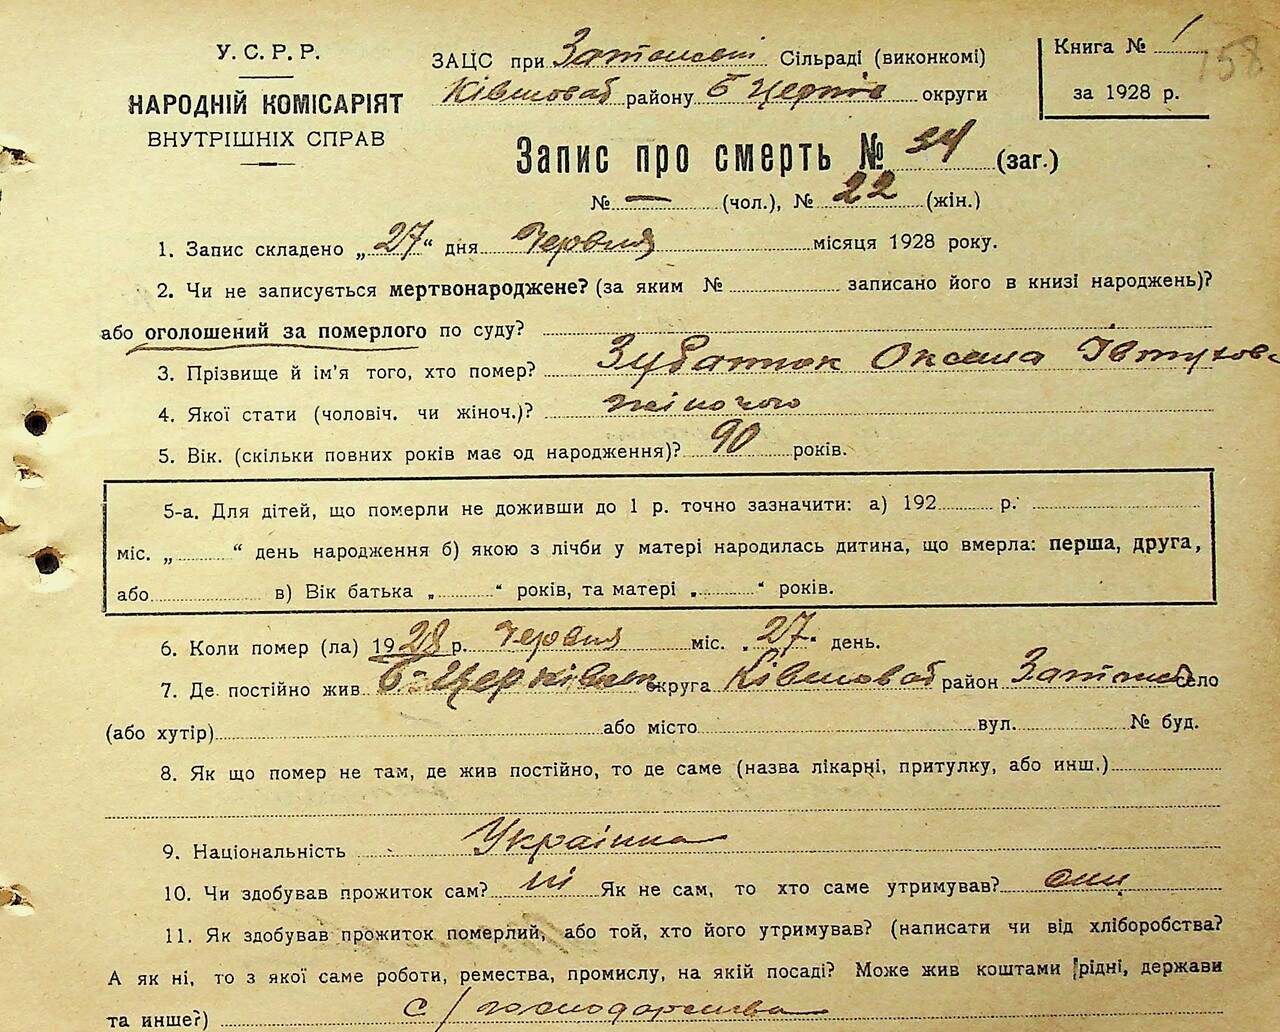 У.С.Р.Р.
НАРОДНІЙ КОМІСАРІЯТ
ВНУТРІШНІХ СПРАВ
ЗАЦС при Сільраді (виконкомі)
району Б Церків округи
Книга № 1
за 1928 р.
158
Запис про смерть № 34 (заг.)
№ — (чол.), № 22 (жін.)
1. Запис складено „27“ дня Червня місяця 1928 року.
2. Чи не записується мертвонароджене? (за яким № записано його в книзі народжень)?
або оголошений за померлого по суду?
3. Прізвище й ім'я того, хто помер? Оксана Івтухов
4. Якої стати (чоловіч. чи жіноч.)? жіночого
5. Вік. (скільки повних років має од народження)? 90 років.
5-а. Для дітей, що померли не доживши до 1 р. точно зазначити: а) 192 р.
міс. „ “ день народження б) якою з лічби у матері народилась дитина, що вмерла: перша, друга,
або в) Вік батька „ “ років, та матері „ “ років.
6. Коли помер (ла) 1928 р. Червня міс. „27“ день.
7. Де постійно жив Б-Церківськ округа район село
(або хутір) або місто вул. № буд.
8. Як що помер не там, де жив постійно, то де саме (назва лікарні, притулку, або инш.)
9. Національність Українка
10. Чи здобував прожиток сам? ні Як не сам, то хто саме утримував? син
11. Як здобував прожиток померлий, або той, хто його утримував? (написати чи від хліборобства?
А як ні, то з якої саме роботи, ремества, промислу, на якій посаді? Може жив коштами рідні, держави
та инше?) с/господарства